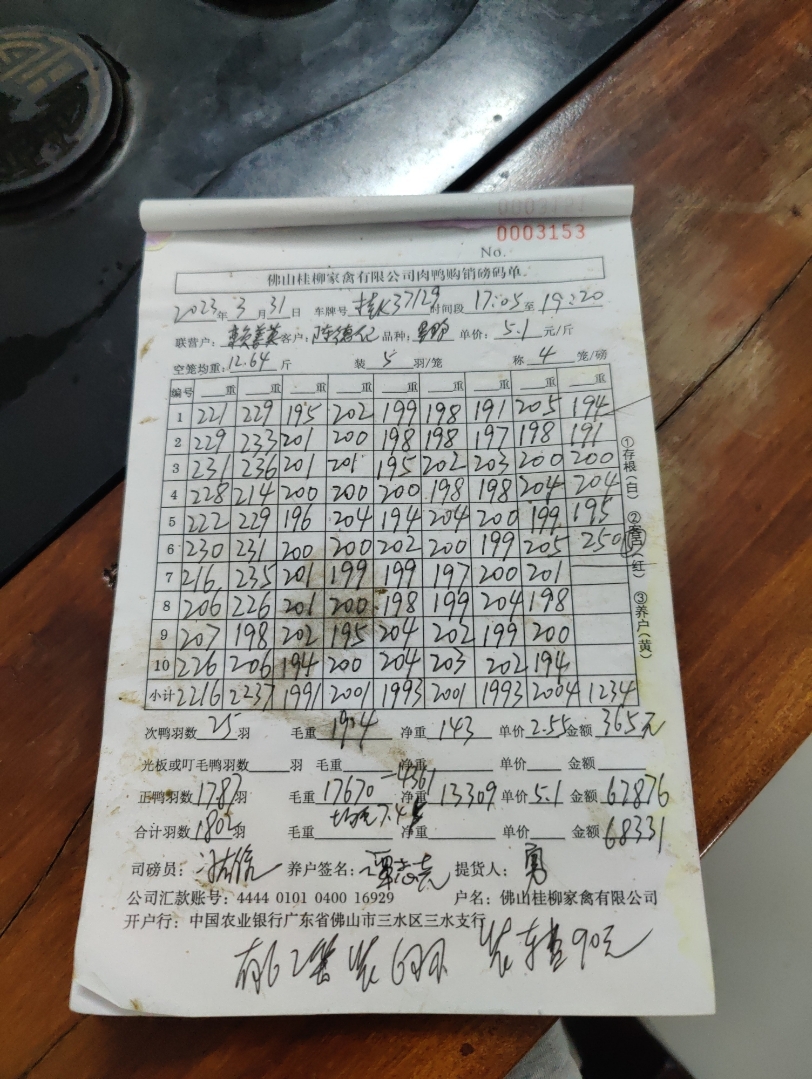 0003153
No.
佛山桂柳家禽有限公司肉鸭购销磅码单
2023年 3月 31日 车牌号 桂K37129 时间段 17:05 至 19:20
联营户: 客户: 陈德亿 品种: 单价: 5.1 元/斤
空笼均重: 12.64 斤 装 5 羽/笼 称 4 笼/磅
编号 重 重 重 重 重 重 重 重 重
1 221 229 195 202 199 198 191 205 194
2 229 233 201 200 198 198 197 198 191
3 231 236 201 201 195 202 203 200 200
4 228 214 200 200 200 198 198 204 204
5 222 229 196 204 194 204 200 199 195
6 230 231 200 200 202 200 199 205 250
7 216 235 201 199 199 197 200 201
8 206 226 201 200 198 199 204 198
9 207 198 202 195 204 202 199 200
10 226 206 194 200 204 203 202 194
小计 2216 2237 1991 2001 1993 2001 1993 2004 1234
①存根(白) ②客户(红) ③养户(黄)
次鸭羽数 25 羽 毛重 194 净重 143 单价 2.55 金额 365元
光板或叮毛鸭羽数 羽 毛重 净重 单价 金额
-4361
正鸭羽数 1787 羽 毛重 17670 净重 13309 单价 5.1 金额 67876
均重7.45
合计羽数 1802 羽 毛重 净重 单价 金额 68331
司磅员: 养户签名: 覃志 提货人: 勇
公司汇款账号: 4444 0101 0400 16929 户名: 佛山桂柳家禽有限公司
开户行: 中国农业银行广东省佛山市三水区三水支行
有62笼装6羽 装车费90元